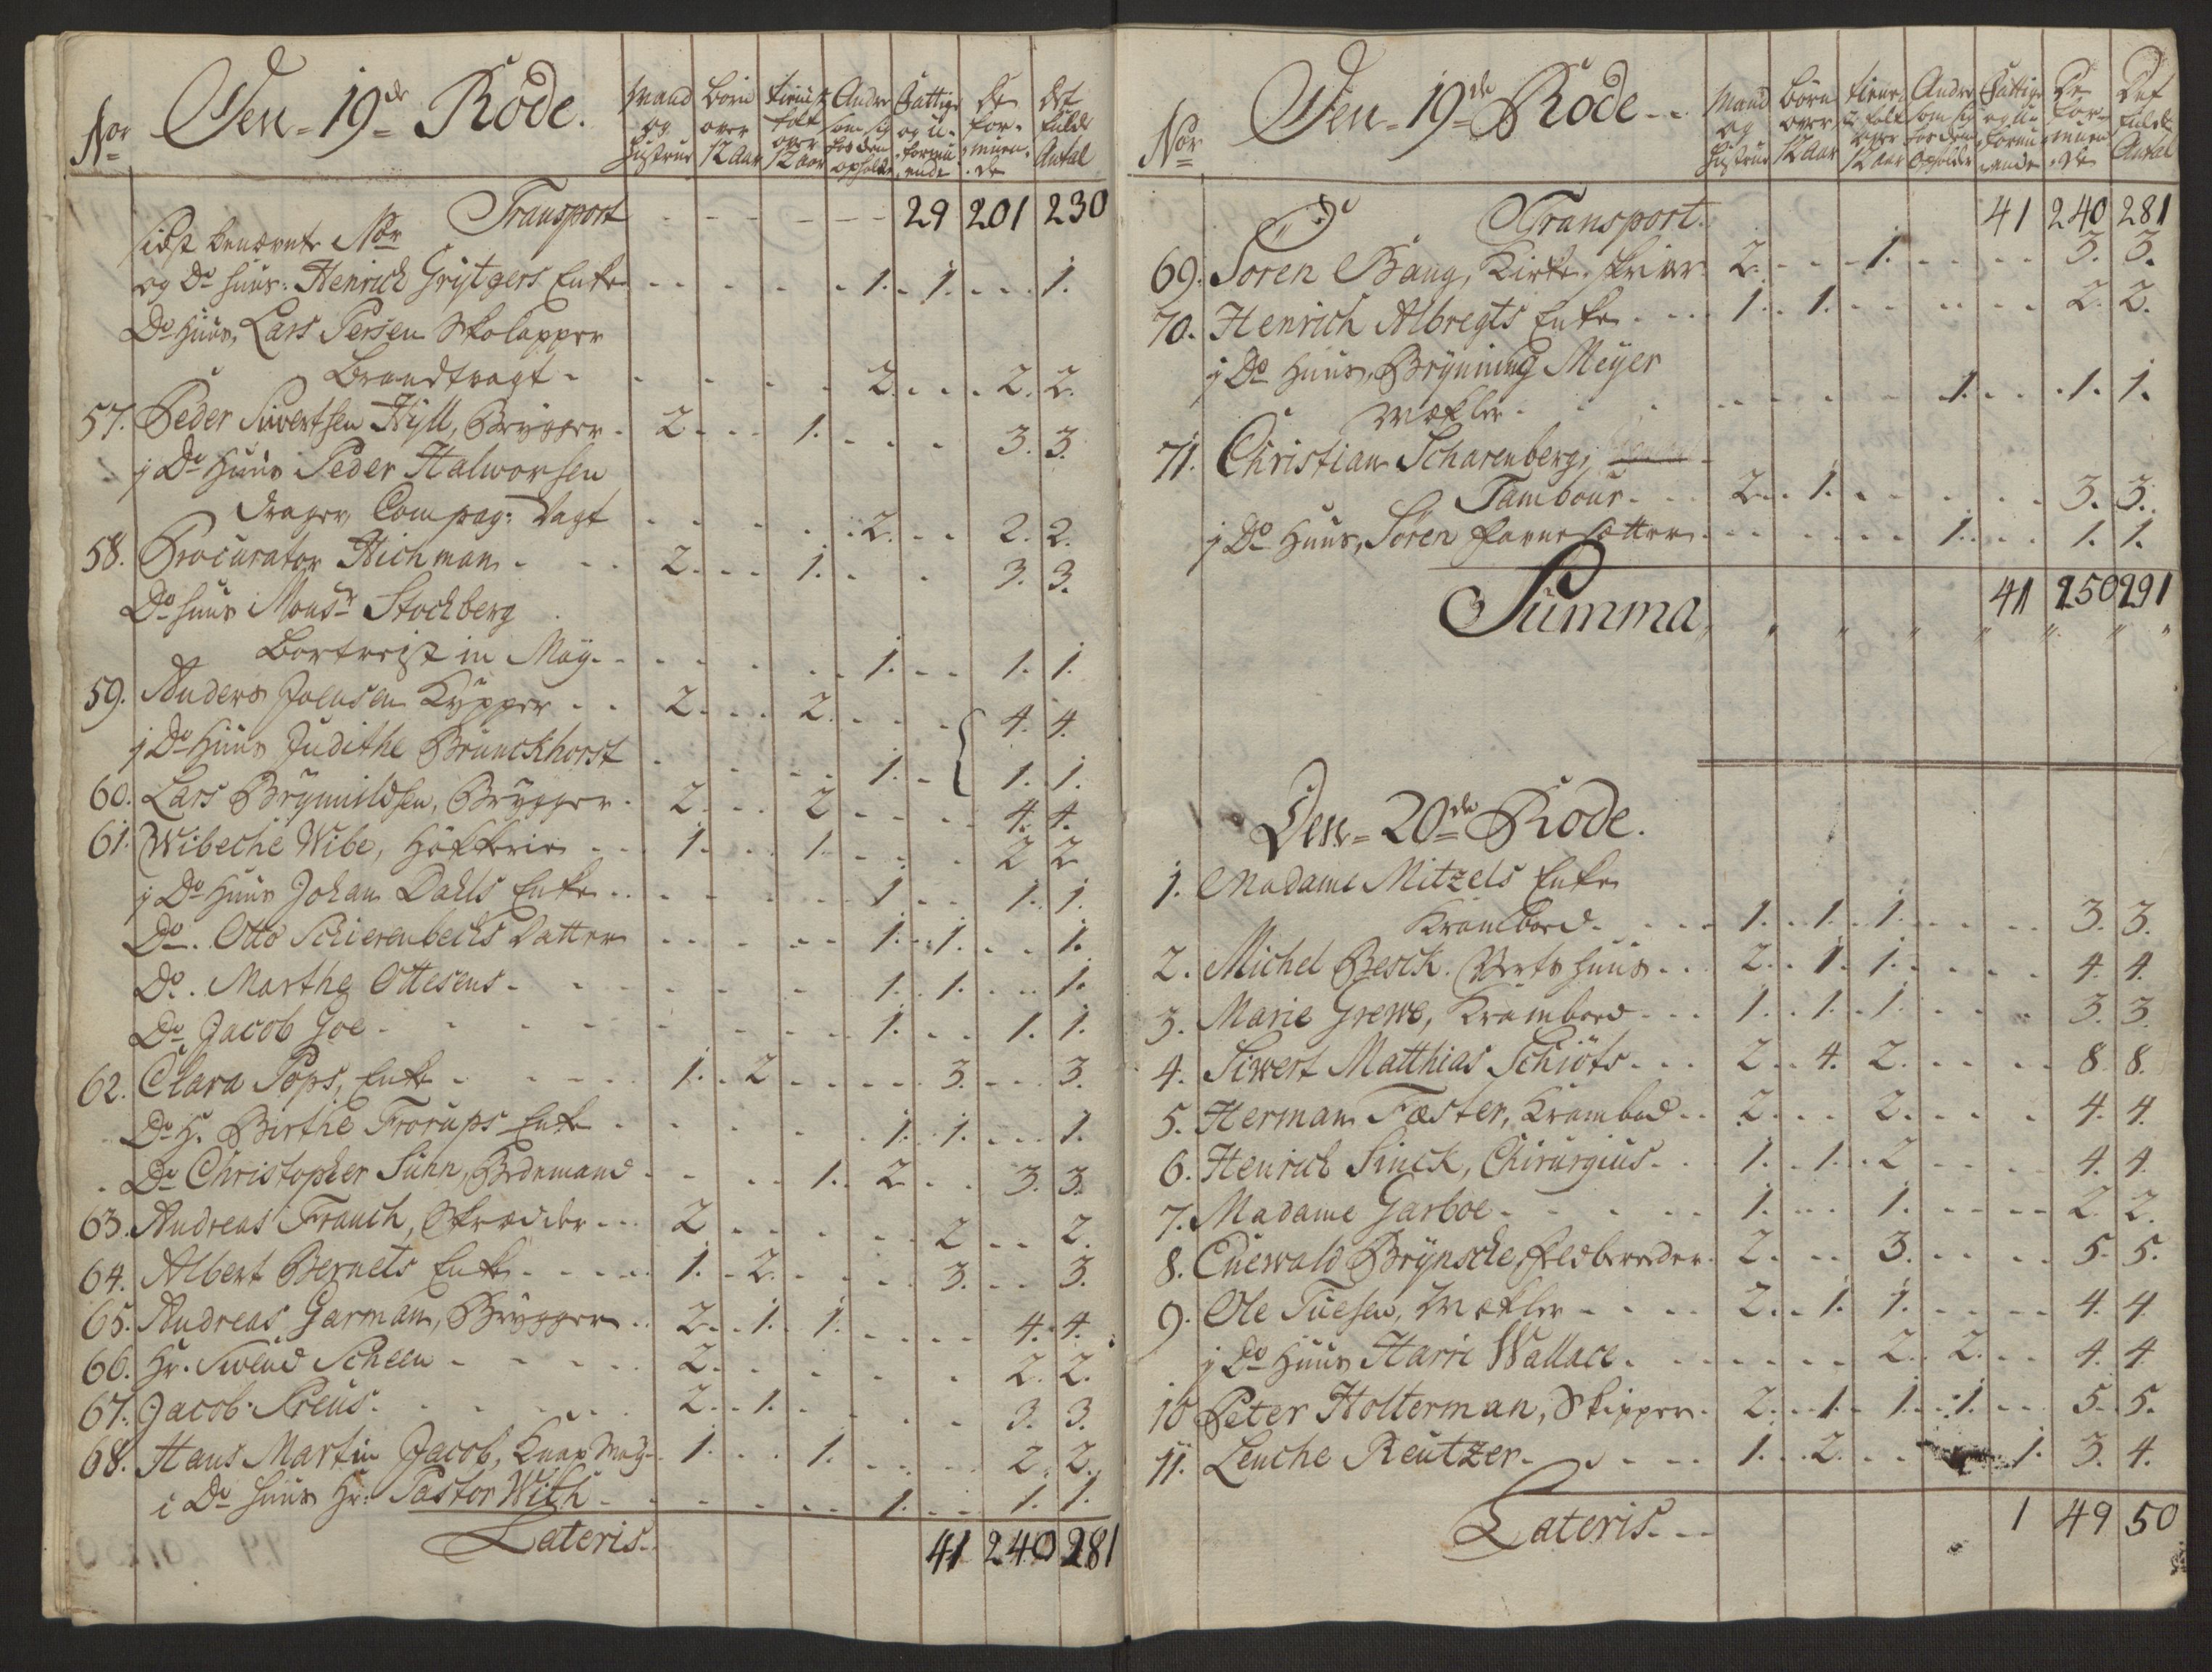 Nor Den 19de Rode. Mand og Hustrue Börn over 12 Aar tieniste folk over 12 Aar Andre som sig hos dem opholde Fattige og u-formu-ende de for-muen-de det fulde Antal
Transport - - - - - 29 201 230
sidst benævnte Nor
og Do huus: Henrich Grÿtgers Enke - - - - 1. 1. - - 1.
Do Huus, Lars Persen Skolapper
Brandvagt - - - - - 2. - - 2. 2.
57. Peder Siwertsen Hÿll, Brÿgger - 2. - - 1. - - - 3. 3.
j Do Huus Peder Halworsen
Drager, Compag: Vagt - - - - 2. - - 2. 2.
58. Procurator Hichman - - - 2. - - 1. - - 3. 3.
Do huus Monsr Stockberg
bortreist in Maÿ - - - - - 1. - - 1. 1.
59. Anders Joensen Kÿpper - - 2. - - 2. - - - 4. 4.
j Do Huus Judithe Brunckhorst - - - - 1. - 1. 1.
60. Lars Brÿnnildsen, Brÿgger - 2. - - 2 - - - 4. 4.
61. Wibeche Wibe, Höckerie - - 1. - - 1. - - - 2 2
j Do Huus Johan Dahls Enke - - - - - 1 - - 1. 1.
Do. Otto Schierenbechs Datter - - - - 1. 1. - - 1.
Do. Marthe Ottesens - - - - - 1. 1. - - 1.
Do Jacob Goe - - - - - - 1. - - 1. 1.
62. Clara Pops, Enke - - - 1. - 2 - - - 3. - - 3.
Do H. Birthe Trorups Enke - - - - 1. 1. - - 1.
Do Christopher Sunn, Bedemand - - - 1. 2 - - 3. 3.
63. Andreas Frauch, Skrædder - - 2 - - - - 2 - - 2.
64. Albert Bernets Enke - - - 1. - 2. - - - 3. - - 3.
65. Andreas Garman, Brÿgger - - 2. - 1. 1. - - - 4. 4.
66. Hr. Swend Scheen - - - - 2. - - - - 2. 2.
67. Jacob Preus - - - - 2. - 1. - - - 3. 3.
68. Hans Martin Jacob, Knap Mag- 1. - - 1. - - - 2. 2.
i Do huus Hr. Pastor With - - - - - 1. - - 1. 1.
Lateris - - 41 240 281
Nor Den 19de Rode - - Mand og Hustrue Börn over 12 Aar tienest folk over 12 aar Andre som sig hos dem opholde Fattige og u-formu-ende De for-muen-de Det fulde Antal
Transport. 41 240 281
69. Soren Bang, Kirke skriver 2. - - 1. - - - 3. 3.
70. Henrich Albregts Enke - - - 1. 1. - - - - 2. 2.
j Do Huus, Brÿnning Meÿer
Mækler - - - - - - 1. - - 1. 1.
71. Christian Scharenberg,
Tambour - - - 2. 1. - - - - 3. 3.
j Do Huus, Sören farvesætter - - - - - 1. - - 1. 1.
Summa 41 250 291
Den 20de Rode.
1. Madame Mitzels Enke
Krambod - - - - 1. 1. 1. - - - 3. 3.
2. Michel Besck. Verts huus - - 2. 1. 1. - - - 4. 4.
3. Marie Grewe, Krambod - - - 1. 1. 1. - - - 3. 3.
4. Siwert Matthias Schiöts - - - 2. 4. 2. - - - 8. 8.
5. Herman Fæster, Krambod - - 2. - - 2. - - - 4. 4.
6. Henrich Sinck, Chirurgius - - 1. 1. 2 - - - 4. 4.
7. Madame Garboe - - - - - 1. - - 1. - - - 2. 2.
8. Cuewald Brÿnsche, feldbereder - 2. - - 3. - - - 5. 5.
9. Ole Tuesen, Mækler - - - - 2. 1. 1. - - - 4. 4.
j Do Huus Harri Wallace - - - - - 2. 2. - - 4. 4.
10 Peter Holterman, Skipper - 2. 1. 1. 1. - - 5. 5.
11. Lenche Reutzer - - - - - 1. 2. - - 1. 3. 4.
Lateris - - 1 49 50